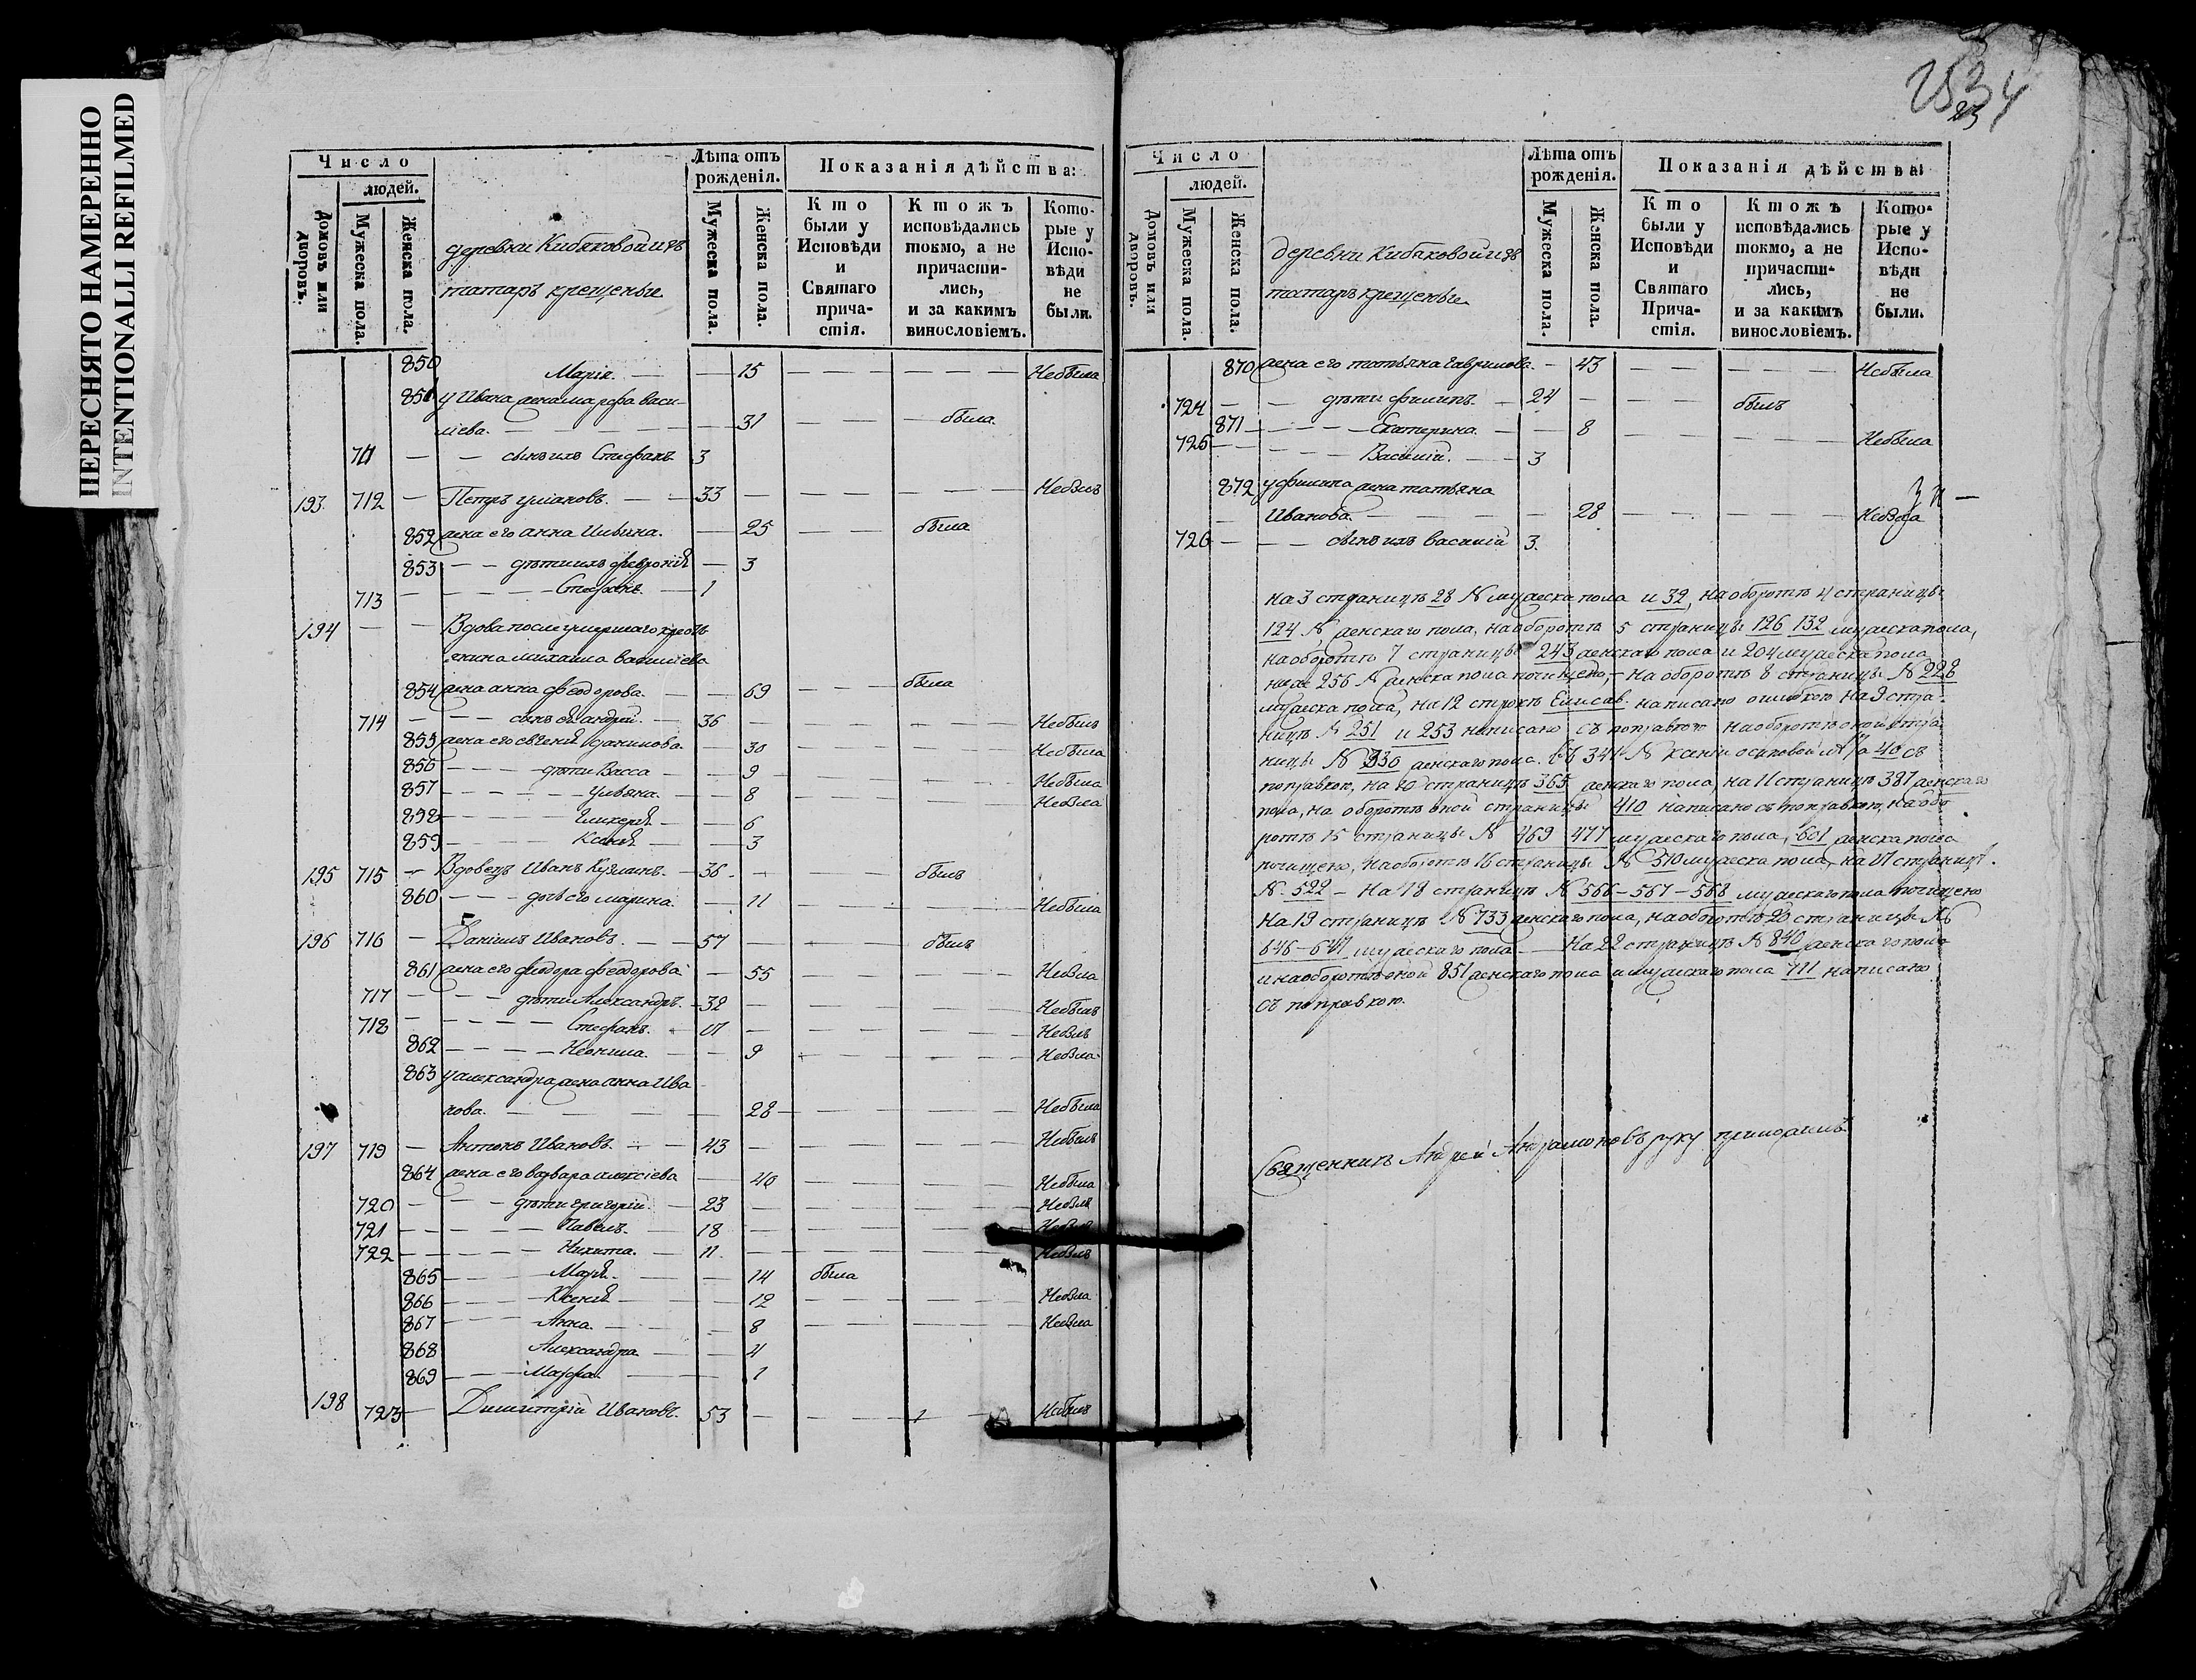 ПЕРЕСНЯТО НАМЕРЕННО
INTENTIONALLI REFILMED
Число
людей.
Домовъ или дворовъ.
Мужеска пола.
Женска пола.
деревни Кибяковой изъ
татаръ крещеные
Лѣта отъ рожденія.
Мужеска пола.
Женска пола.
Показанія дѣйства:
Кто были у Исповѣди и Святаго причастія.
Ктожъ исповѣдались токмо, а не причастились, и за какимъ винословіемъ.
Которые у Исповѣди не были.
850 Марія. — — 15 — — — — — Небыла
851 у Ивана жена марфа васи
лієва. — — 31 — — была
711 — — сынъ ихъ Стефанъ 3
193. 712 — Петръ — — 33 — — — — Небылъ
852 жена его анна Ильина. — 25 — — была
853 — — дѣти ихъ феврониѣ — 3
713 — — — — Стефанъ. — 1
194 — — Вдова после умершаго кресть
янина михаила василіева
854 жена анна феодорова. — — 69 — — — была
714 — — — сынъ еѣ андрей. — 36 — — — — Небылъ
855 жена его евгениѣ данилова. — 30 — — — — Небыла
856 — — — дѣти Васса — — 9 — — — — Небыла
857 — — — — — ульяна. — — 8 — — — — Небыла
858 — — — — гликериѣ — — 6
859 — — — — Ксениѣ — — 3
195 715 — Вдовецъ Иванъ Кузминъ. — 36. — — — былъ
860 — — — дочь его марина. — 11 — — — — Небыла
196 716 — Даніилъ Ивановъ. — — 57 — — — былъ
861 жена его феодора феодорова — 55 — — — — Небыла
717 — — — дѣти Александръ. — 32 — — — — Небылъ
718 — — — — — Стефанъ. — 17 — — — — Небылъ
862 — — — — Неонила. — — 9 — — — — Небыла
863 у александра жена анна Ива
нова. — — 28 — — — — Небыла
197 719 — Антонъ Ивановъ. — — 43 — — — — Небылъ
864 жена его варвара алексіева — 40 — — — — Небыла
720 — — — дѣти григорій. — 23 — — — — Небылъ
721 — — — — Павелъ. — 18 — — — — Небылъ
722 — — — — — Никита. — 11. — — — — Небылъ
865 — — — Мариѣ. — — 14 была
866 — — — Ксениѣ — — 12 — — — — Небыла
867 — — — Анна. — — 8 — — — — Небыла
868 Александра. — — 4
869 — — — Марфа. — — 1
198 723 — Димитрій Ивановъ. 53 — — — — Небылъ
2534
23
Число
людей.
Домовъ или дворовъ.
Мужеска пола.
Женска пола.
деревни Кибяковой изъ
татаръ крещеные
Лѣта отъ рожденія.
Мужеска пола.
Женска пола.
Показанія дѣйства:
Кто были у Исповѣди и Святаго Причастія.
Ктожъ исповѣдались токмо, а не причастились, и за какимъ винословіемъ.
Которые у Исповѣди не были.
870 жена его татьяна гаврилова. — 43 — — — — Небыла
724 — — дѣти филипъ. — 24 — — былъ
871 — — — — Екатерина. — — 8 — — — — Небыла
725 — — — — Василій. — — 3
872 у филипа жена татьяна
Иванова. — — 28 — — — — Небыла
726 — — — сынъ ихъ василій 3.
На 3 страницѣ 28 № мужеска пола и 32, на оборотѣ 4 страницы
124 № женскаго пола, на оборотѣ 5 страницы 126 132 мужеска пола,
на оборотѣ 7 страницы 243 женскаго пола и 204 мужеска пола
ниже 256 № женска пола почищено, — На оборотѣ 8 страницы № 228
мужеска пола, на 12 строкѣ Елисав. написано ошибкою На 9 стра-
ницѣ № 251 и 253 написано съ поправкою на оборотѣ оной стра
ницы № 330 женскаго пола. 341 № ксении осиповой 40 съ
поправкою, на 10 страницѣ 365 женскаго пола, на 11 страницѣ 387 женскаго
пола, на оборотѣ оной страницы 410 написано съ поправкою, на обо
ротѣ 15 страницы № 469 477 мужескаго пола, 601 женска пола
почищено, на оборотѣ 16 страницы № 510 мужеска пола, на 17 страницѣ.
№ 522 — На 18 страницѣ № 566 — 567 — 568 мужескаго пола почищено
На 19 страницѣ № 733 женскаго пола, на оборотѣ 20 страницы №
646 — 647 мужескаго пола — На 22 страницѣ № 840 женскаго пола
и на оборотѣ оной 851 женскаго пола и мужескаго пола 711 написано
съ поправкою.
Священникъ Андрей руку приложилъ.